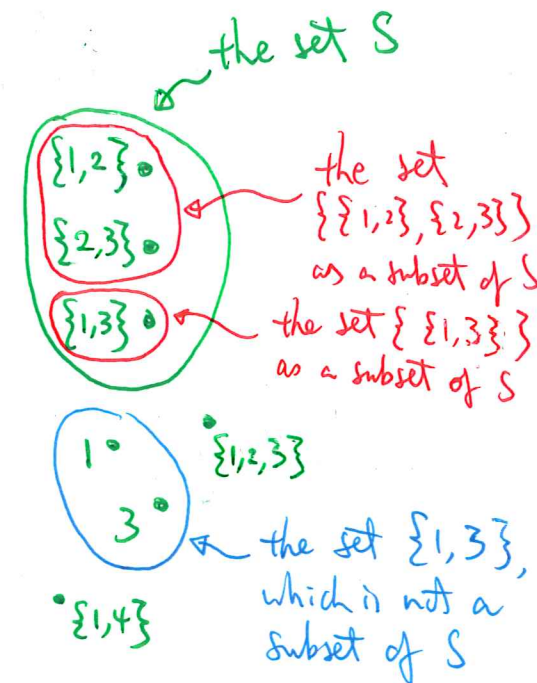 the set S
{1,2}
{2,3}
{1,3}
the set
{{1,2},{2,3}}
as a subset of S
the set { {1,3} }
as a subset of S
1
3
{1,2,3}
{1,4}
the set {1,3},
which is not a
subset of S